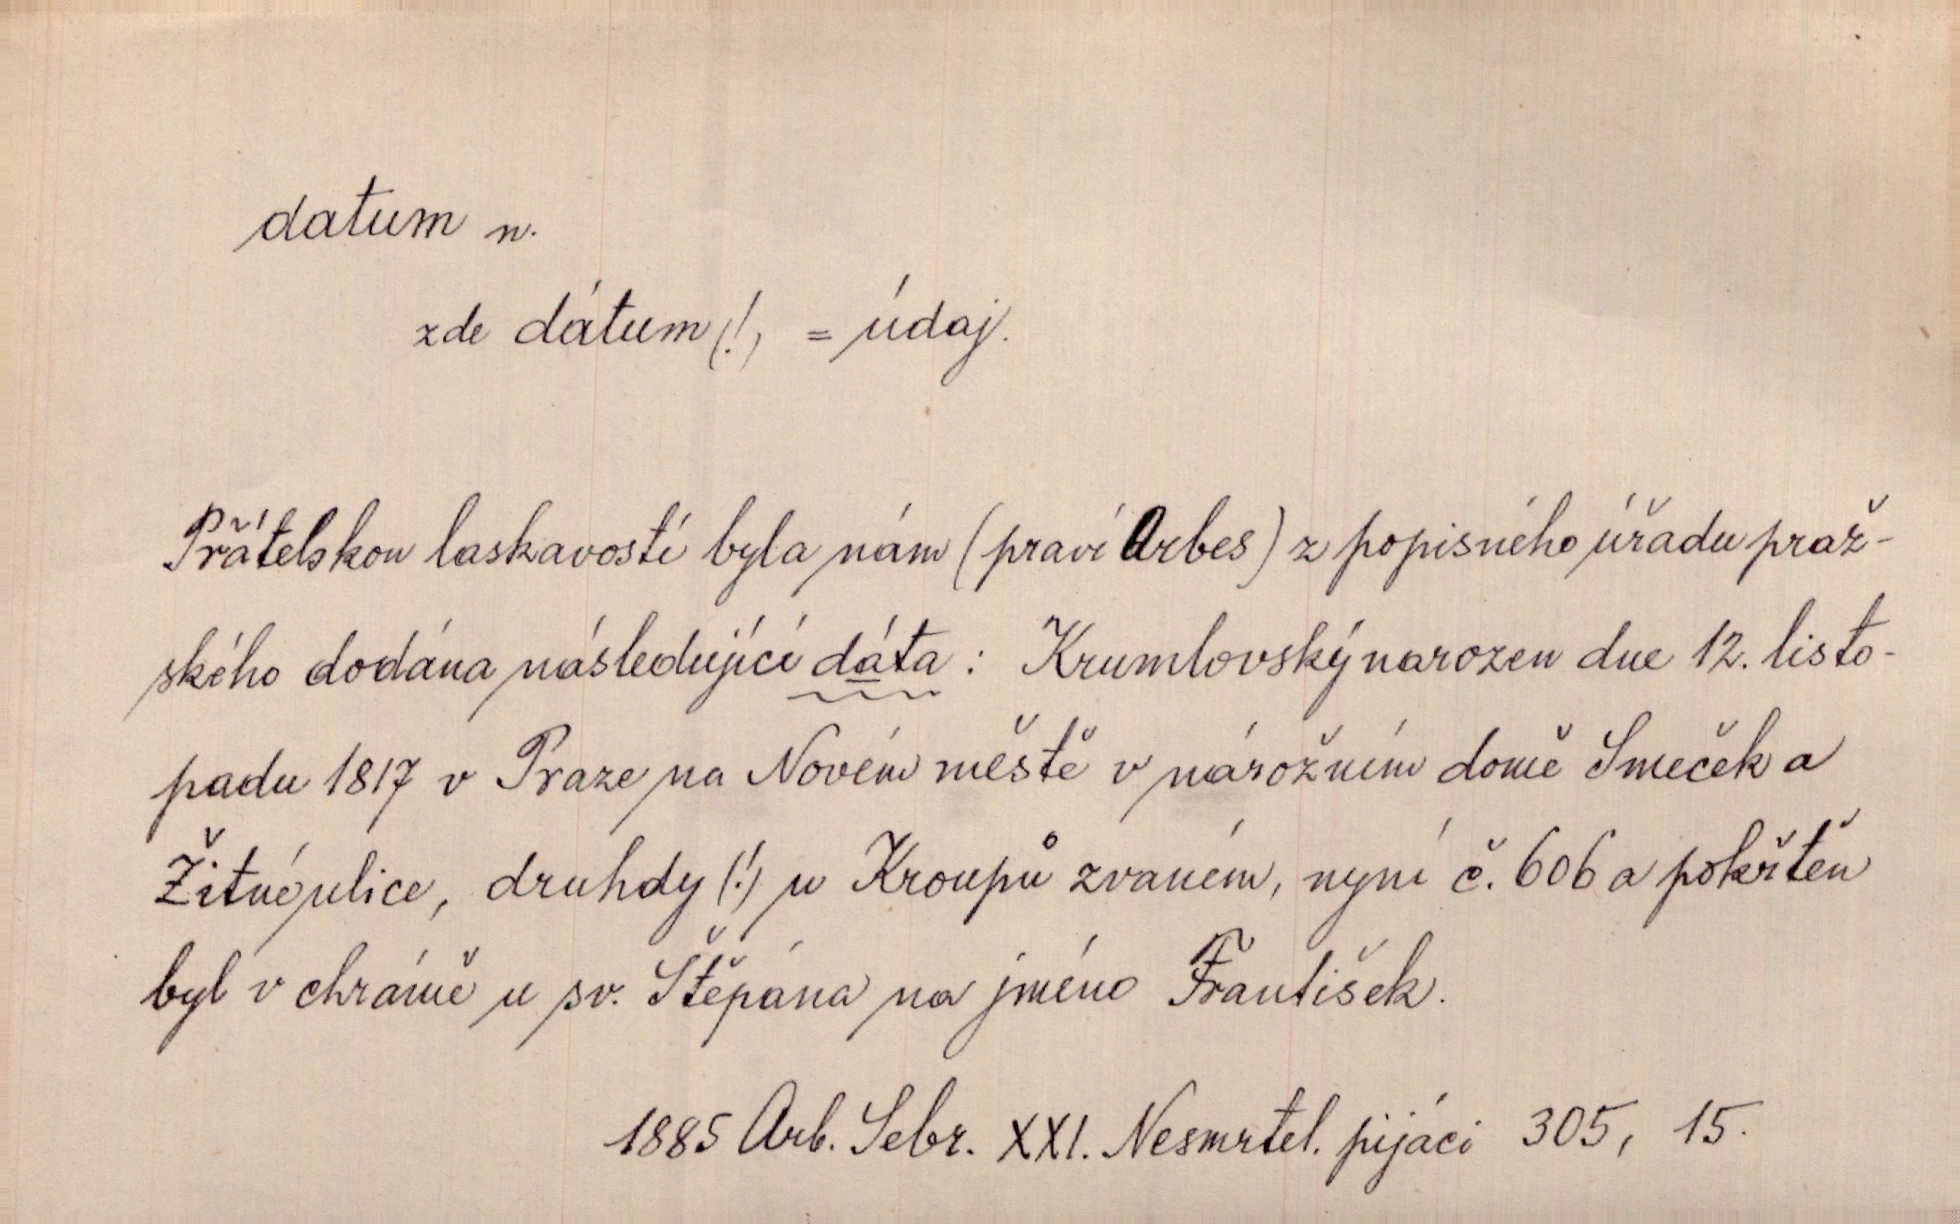 datum n.
zde dátum (!) = údaj.
Přátelskou laskavostí byla nám (praví Arbes) z popisného úřadu praž-
ského dodána následující dáta : Krumlovský narozen dne 12. listo-
padu 1817 v Praze na Novém městě v nárožním domě Smeček a
Žitné ulice, druhdy (!) u Kroupů zvaném, nyní č. 606 a pokřtěn
byl v chrámě u sv. Štěpána na jméno František.
1885 Arb. Sebr. XXI. Nesmrtel. pijáci 305, 15.